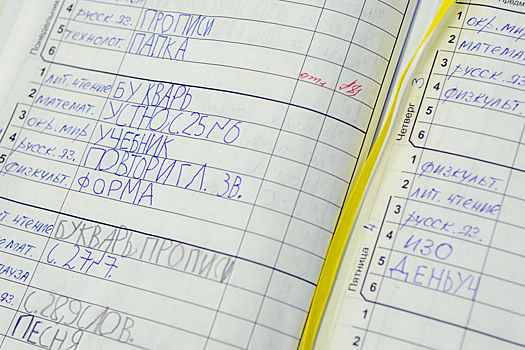 Понедельник
4 русск. яз. ПРОПИСИ
5 технолог. ПАПКА
6
1 лит. чтение БУКВАРЬ
2 математ. УСТНО С.25 №6
3 окр. мир УЧЕБНИК
4 русск. яз. ПОВТОРИ ГЛ. ЗВ.
5 физкульт. ФОРМА
чтение БУКВАРЬ, ПРОПИСИ
емат. С. 27 №7.
яз. С.28,9 СЛОВ.
ПЕСНЯ
Четверг 3
1 окр. мир
2 математ
3 русск. яз
4 физкульт
5
6
Пятница 4
1 физкульт.
2 лит. чтение
3 русск. яз.
4 ИЗО
5 ДЕНЬУЧ
6
1
2